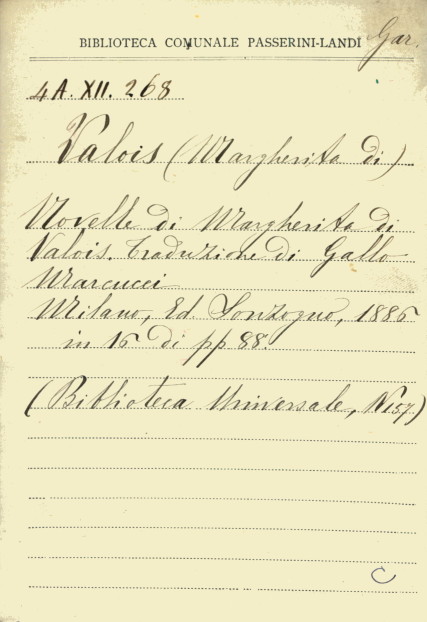 BIBLIOTECA COMUNALE PASSERINI-LANDI Gar.
4A. XII. 268
Valois (Margherita di)
Novelle di Margherita di
Valois. Traduzione di Gallo
Marcucci
Milano, Ed. Sonzogno, 1886
in 16 di pp 88.
(Biblioteca Universale, N 157)
C